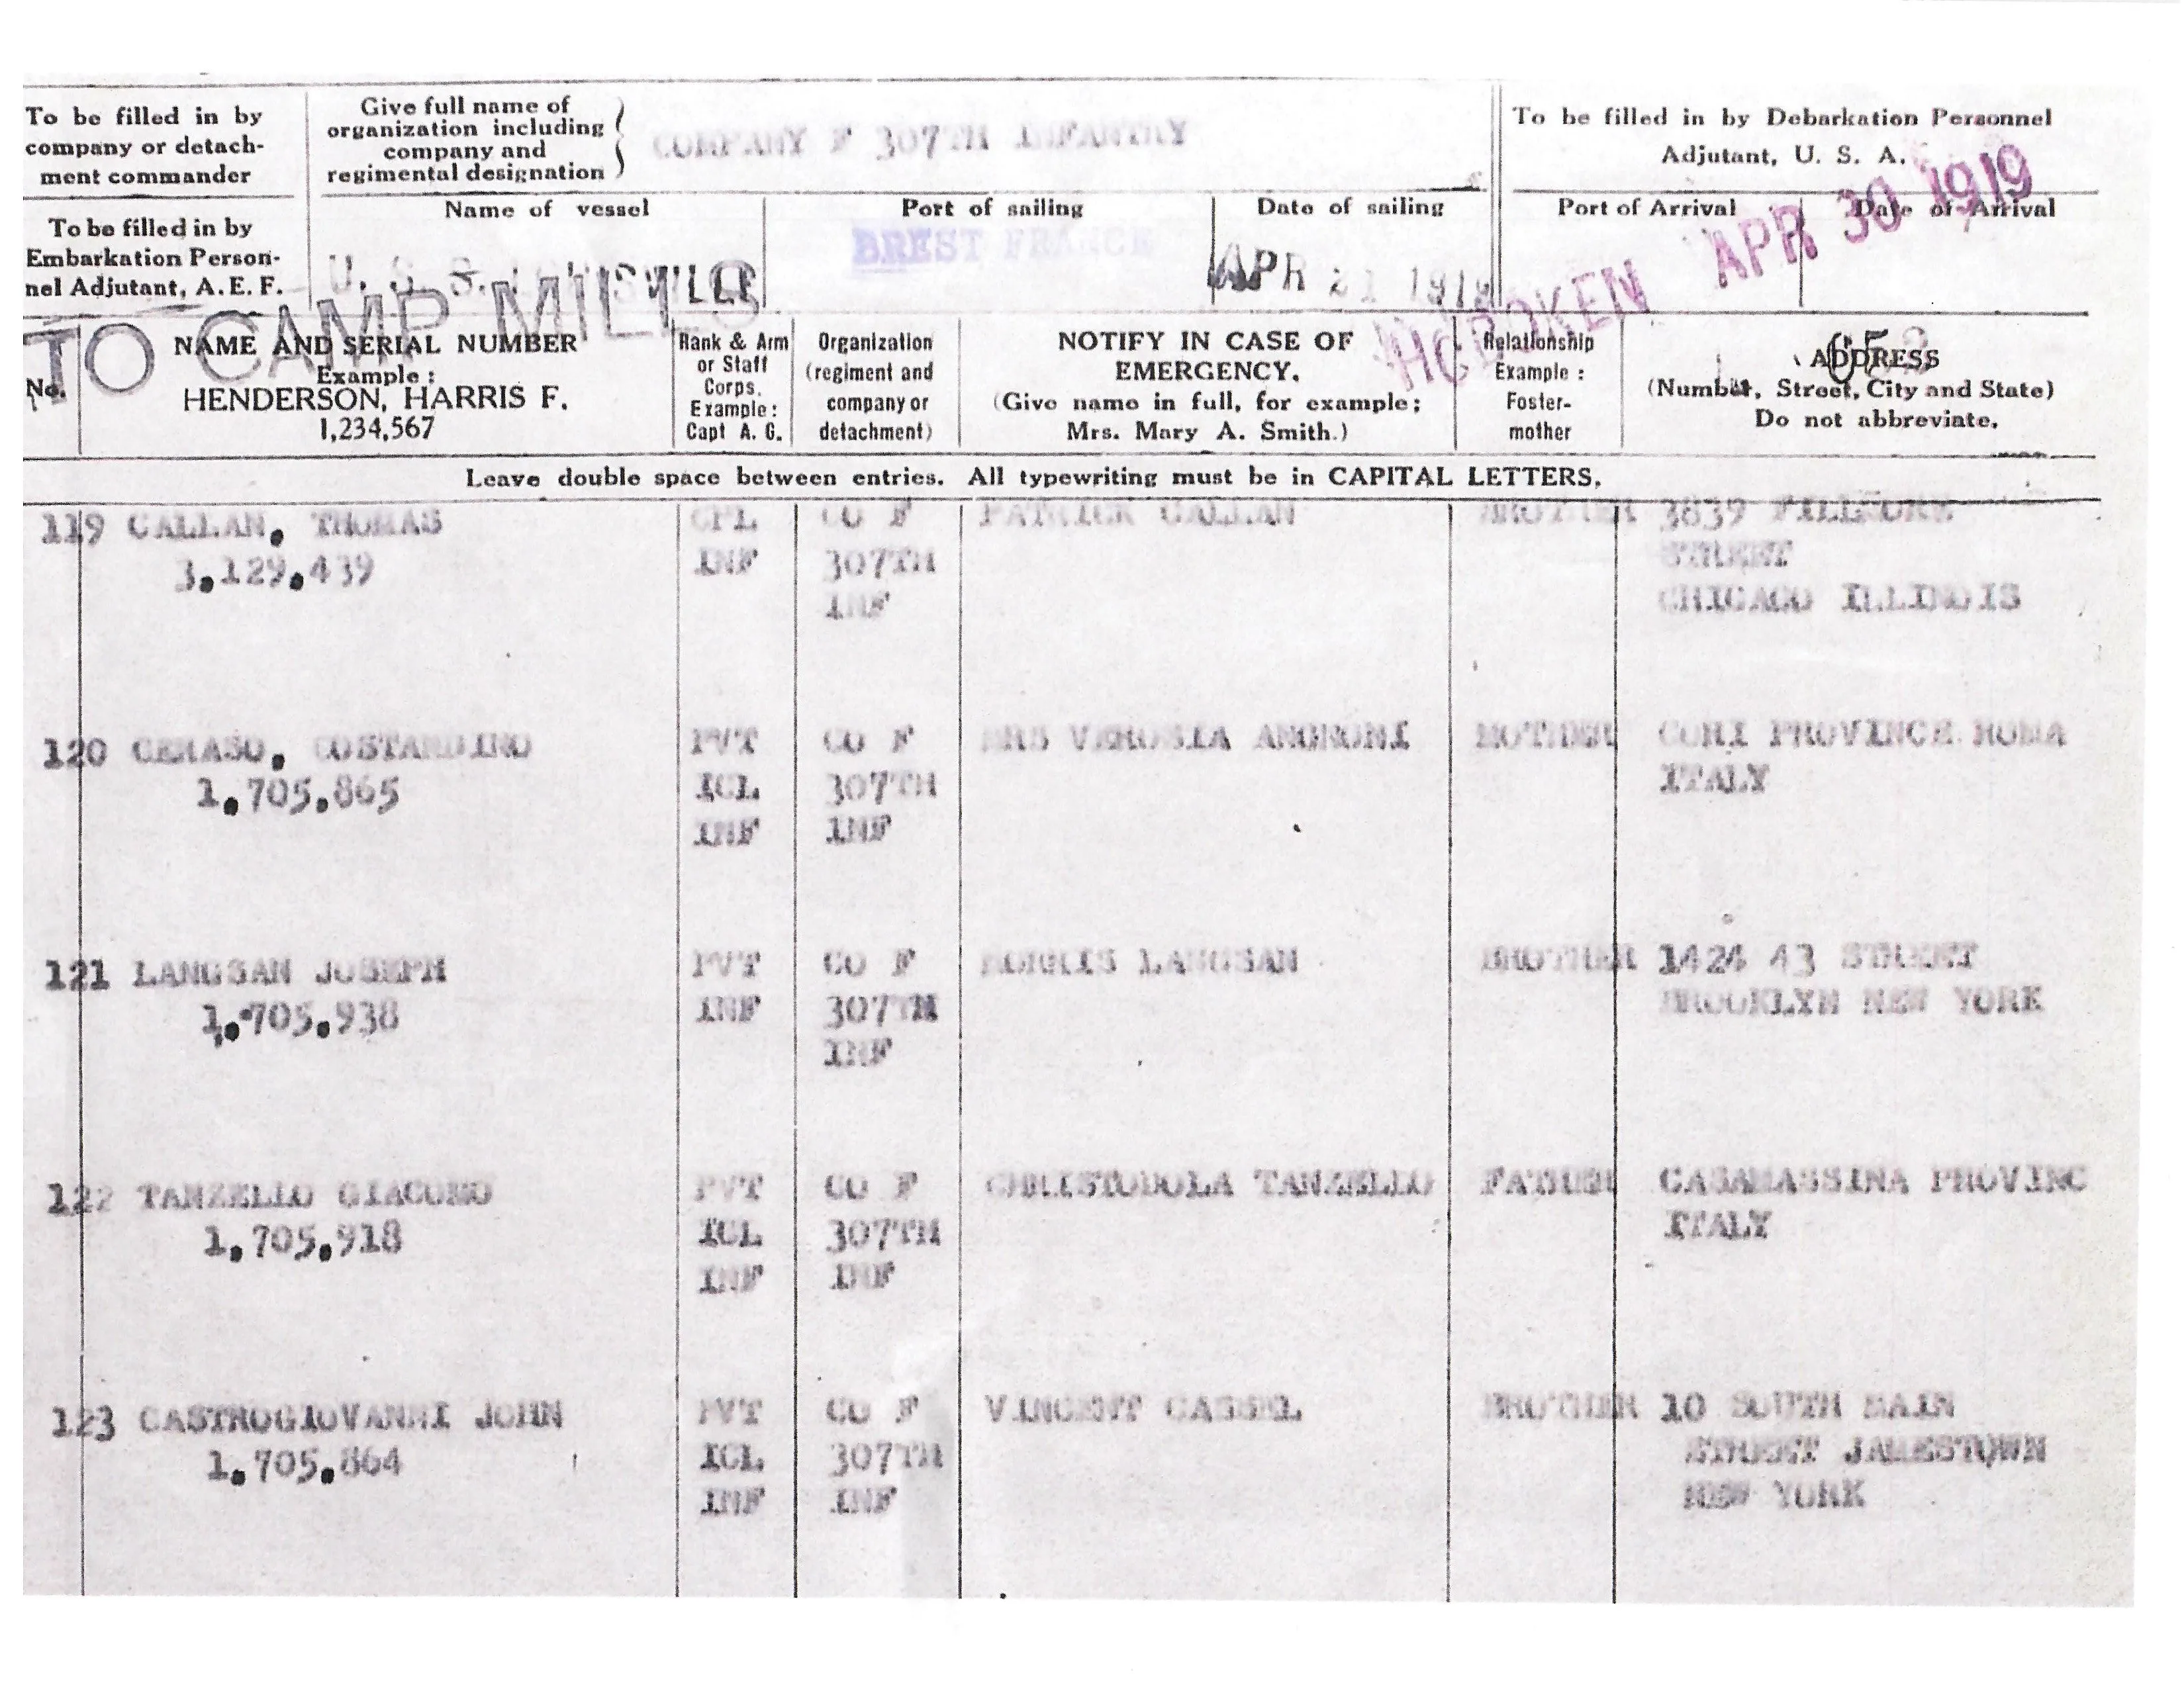 To be filled in by
company or detach-
ment commander
Give full name of
organization including
company and
regimental designation
COMPANY F 307TH INFANTRY
To be filled in by Debarkation Personnel
Adjutant, U. S. A.
To be filled in by
Embarkation Person-
nel Adjutant, A. E. F.
Name of vessel
U. S. S.
Port of sailing
BREST FRANCE
Date of sailing
APR 21 1919
Port of Arrival
HOBOKEN
Date of Arrival
APR 30 1919
TO CAMP MILLS
No.
NAME AND SERIAL NUMBER
Example:
HENDERSON, HARRIS F.
1,234,567
Rank & Arm
or Staff
Corps.
Example:
Capt A. G.
Organization
(regiment and
company or
detachment)
NOTIFY IN CASE OF
EMERGENCY.
(Give name in full, for example;
Mrs. Mary A. Smith.)
Relationship
Example:
Foster-
mother
ADDRESS
(Number, Street, City and State)
Do not abbreviate.
Leave double space between entries. All typewriting must be in CAPITAL LETTERS.
119 CALLAN, THOMAS CPL CO F PATRICK CALLAN BROTHER 3839 FILLMORE
3,129,439 INF 307TH STREET
INF CHICAGO ILLINOIS
120 CERASO, COSTANDINO PVT CO F MRS ANGNONI MOTHER CORI PROVINCE ROMA
1,705,865 1CL 307TH ITALY
INF INF
121 LANGSAN JOSEPH PVT CO F MORRIS LANGSAN BROTHER 1424 43 STREET
1,705,938 INF 307TH BROOKLYN NEW YORK
INF
122 TANZELLO GIACOMO PVT CO F CHRISTODOLA TANZELLO FATHER CASAMASSINA PROVINC
1,705,918 1CL 307TH ITALY
INF INF
123 CASTROGIOVANNI JOHN PVT CO F VINCENT CASSEL BROTHER 10 SOUTH MAIN
1,705,864 1CL 307TH STREET JAMESTOWN
INF INF NEW YORK